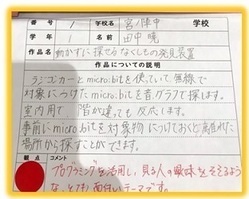 番号 1 学校名 宮ノ陣中 学校
学年 1 名前 田中 曉
作品名 動かずに探せるなくしもの発見装置
作品についての説明
ラジコンカーとmicro:bitを使っていて無線で
対象につけたmicro:bitを音、グラフで探します。
室内用で 階が違っても反応します。
事前にmicro:bitを対象物につけておくと離れた
場所から探すことができます。
観点 コメント
プログラミングを活用し、見る人の興味をそそるよう
な、とても面白いテーマです。